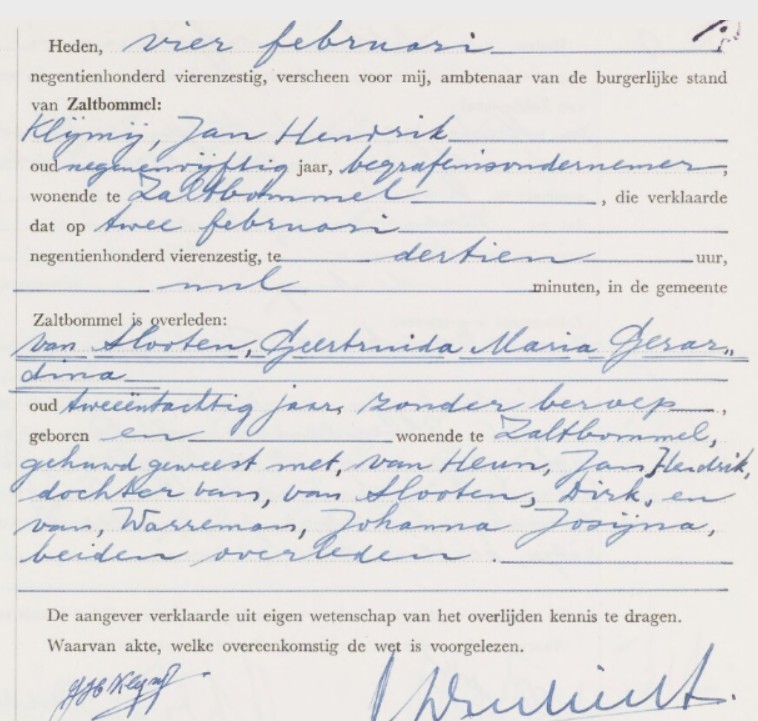 Heden, vier februari
negentienhonderd vierenzestig, verscheen voor mij, ambtenaar van de burgerlijke stand
van Zaltbommel:
Klijmij, Jan Hendrik
oud negenenvijftig jaar, begrafenisondernemer,
wonende te Zaltbommel, die verklaarde
dat op twee februari
negentienhonderd vierenzestig, te dertien uur,
nul minuten, in de gemeente
Zaltbommel is overleden:
van Slooten, Geertruida Maria Gerar„
dina
oud tweeëntachtig jaar, zonder beroep,
geboren en wonende te Zaltbommel,
gehuwd geweest met, van Heun, Jan Hendrik,
dochter van, van Slooten, Dirk, en
van, Warreman, Johanna Josijna,
beiden overleden.
De aangever verklaarde uit eigen wetenschap van het overlijden kennis te dragen.
Waarvan akte, welke overeenkomstig de wet is voorgelezen.